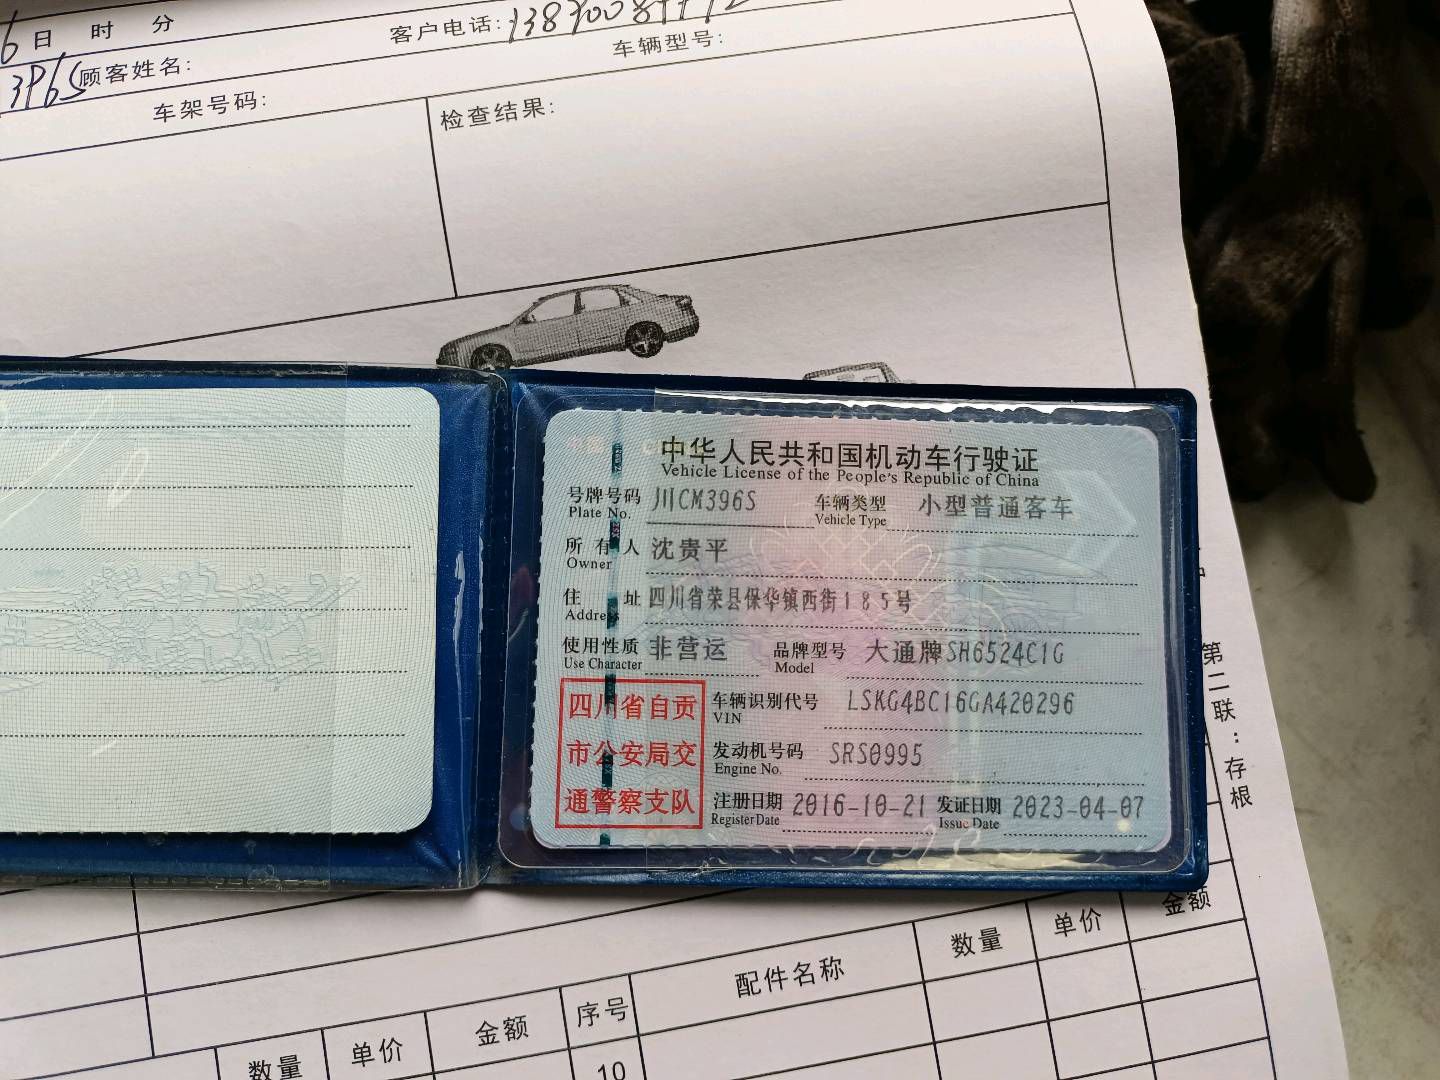 6日 时 分 客户电话:
396S 顾客姓名: 车辆型号:
车架号码: 检查结果:
中华人民共和国机动车行驶证
Vehicle License of the People's Republic of China
号牌号码 川CM396S 车辆类型 小型普通客车
Plate No. Vehicle Type
所有人 沈贵平
Owner
住址 四川省荣县保华镇西街185号
Address
使用性质 非营运 品牌型号 大通牌SH6524C1G
Use Character Model
四川省自贡
市公安局交
通警察支队
车辆识别代号 LSKG4BC16GA420296
VIN
发动机号码 SRS0995
Engine No.
注册日期 2016-10-21 发证日期 2023-04-07
Register Date Issue Date
第二联:存根
数量 单价 金额 序号 配件名称 数量 单价 金额
10